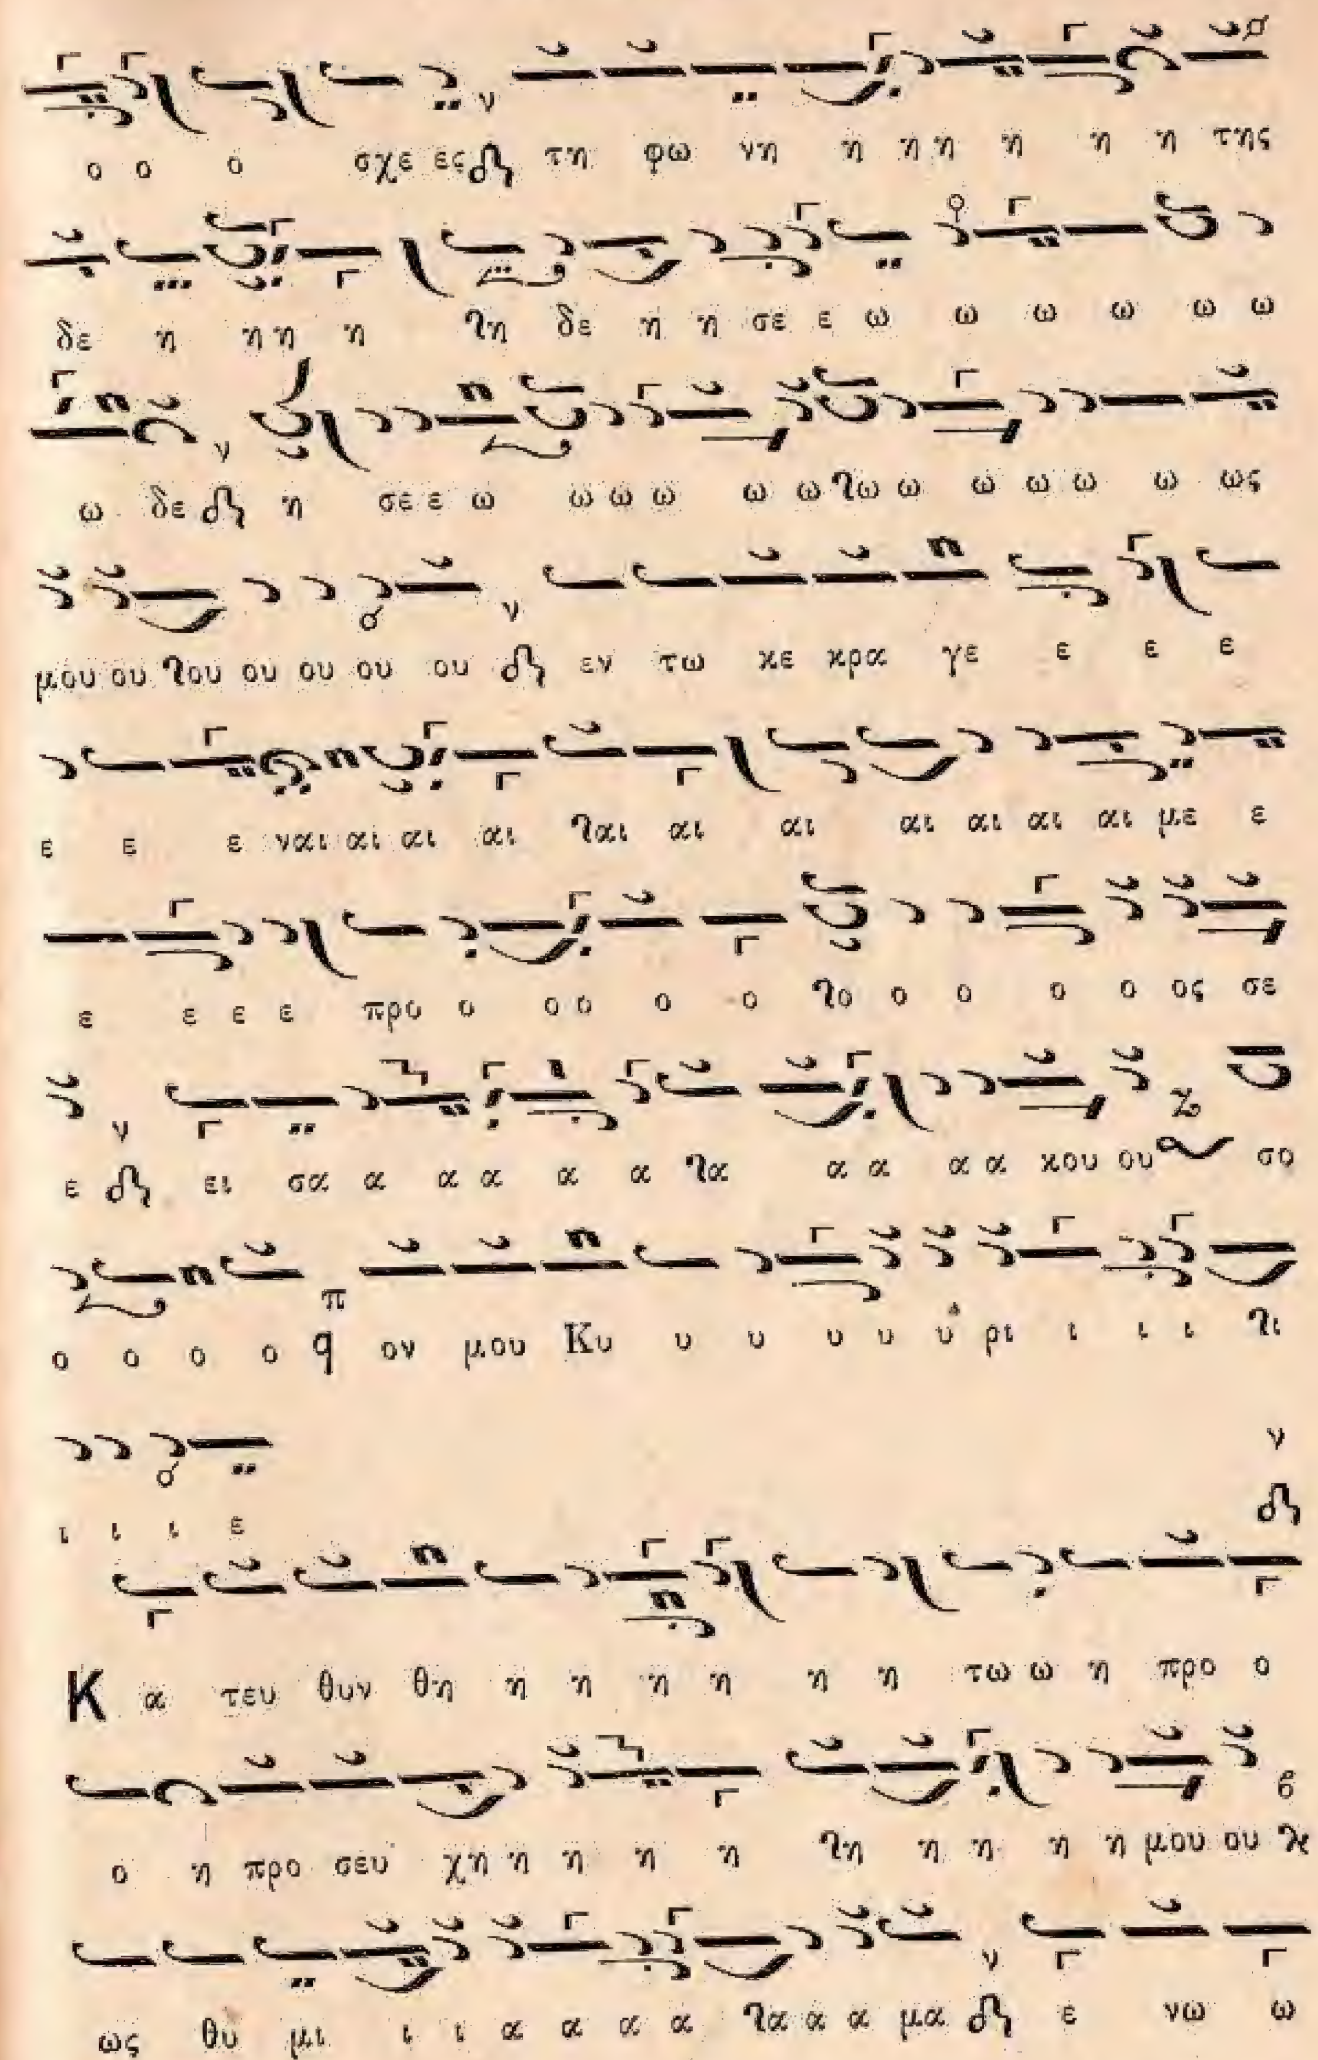 ο ο ο σχε ες τη φω νη η η η η η η της
δε η η η η τη δε η η σε ε ω ω ω ω ω ω
ω δε η σε ε ω ω ω ω ω ω τω ω ω ω ω ω ως
μου ου του ου ου ου ου εν τω κε κρα γε ε ε ε
ε ε ε ναι αι αι αι ται αι αι αι αι αι αι με ε
ε ε ε ε προ ο ο ο ο ο το ο ο ο ο ος σε
ε ει σα α α α α α τα α α α α κου ου σο
ο ο ο ο ον μου Κυ υ υ υ υ υ ρι ι ι ι τι
ι ι ι ε
Κ α τευ θυν θη η η η η η η τω ω η προ ο
ο η προ σευ χη η η η η τη η η η η μου ου
ως θυ μι ι ι α α α α τα α α μα ε νω ω